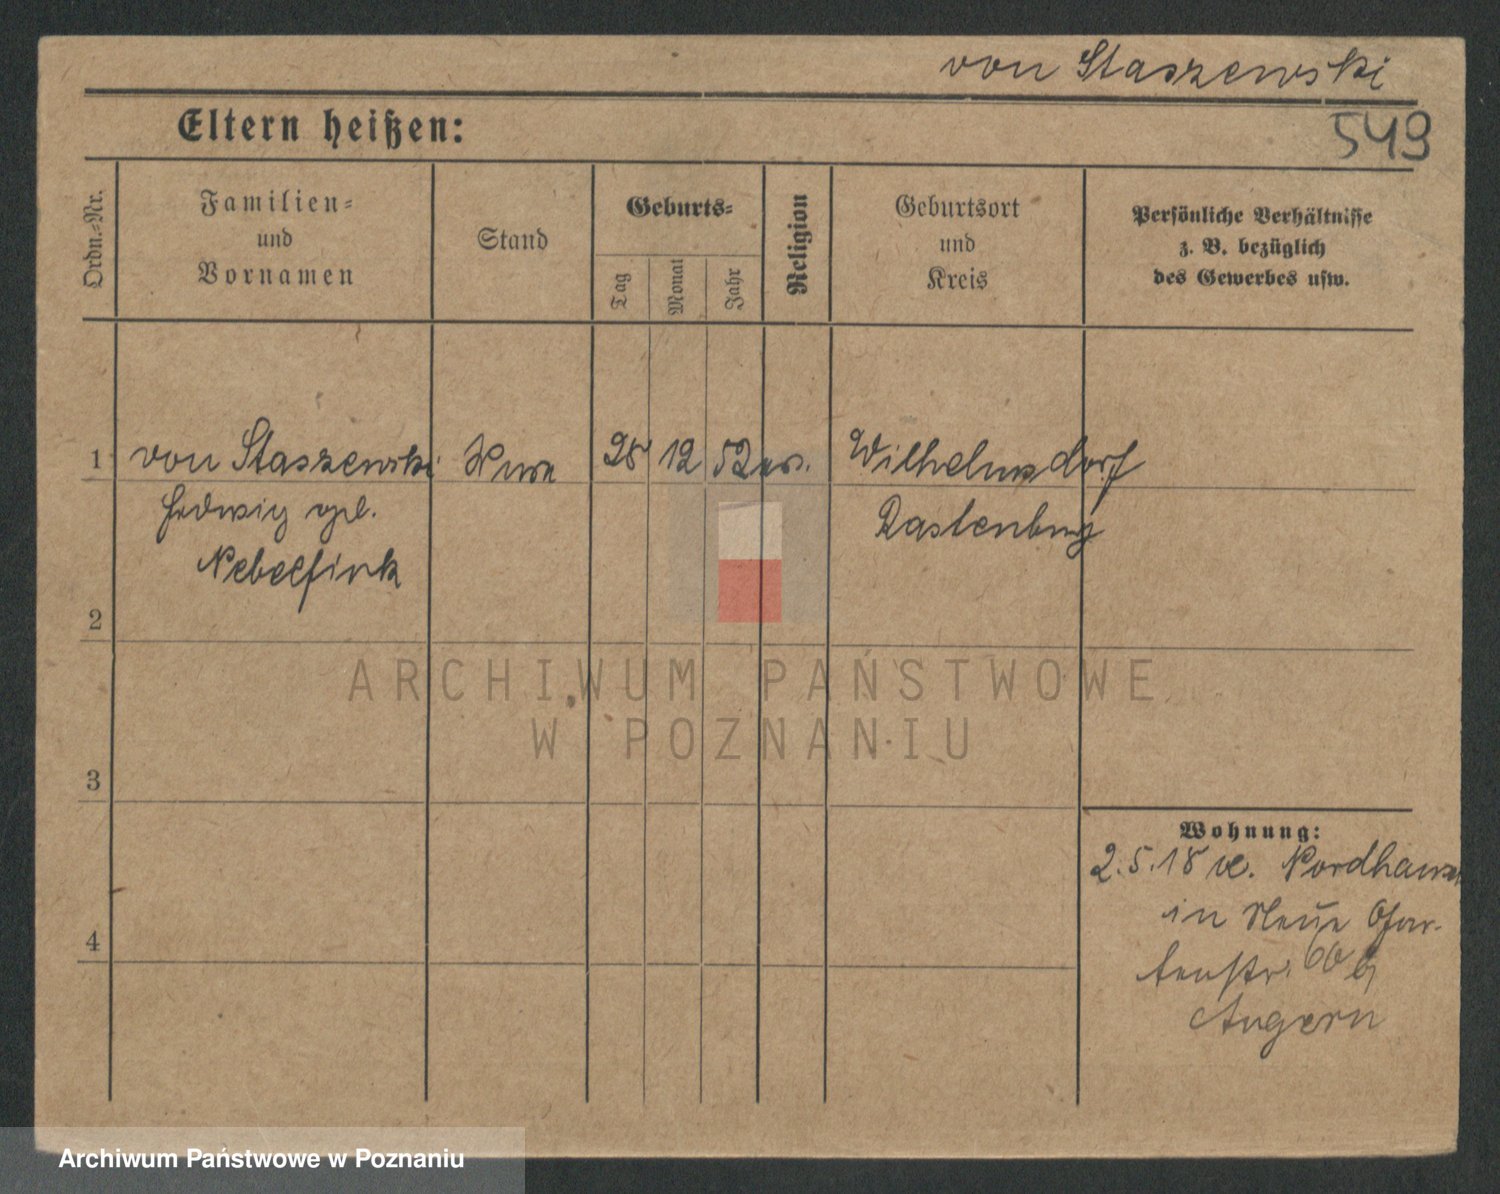 von Staszewski
549
Eltern heißen:
Ordn.-Nr.
Familien-
und
Vornamen
Stand
Geburts-
Tag
Monat
Jahr
Religion
Geburtsort
und
Kreis
Persönliche Verhältnisse
z. B. bezüglich
des Gewerbes usw.
1 von Staszewski Wwe 25 12 52 ev. Wilhelmsdorf
Hedwig geb. Rastenburg
Nebelfink
2
3
4
Wohnung:
2.5.18 v. Nordhausen
in Neue Gar-
tenstr. 66 b
Angern
ARCHIWUM PAŃSTWOWE
W POZNANIU
Archiwum Państwowe w Poznaniu